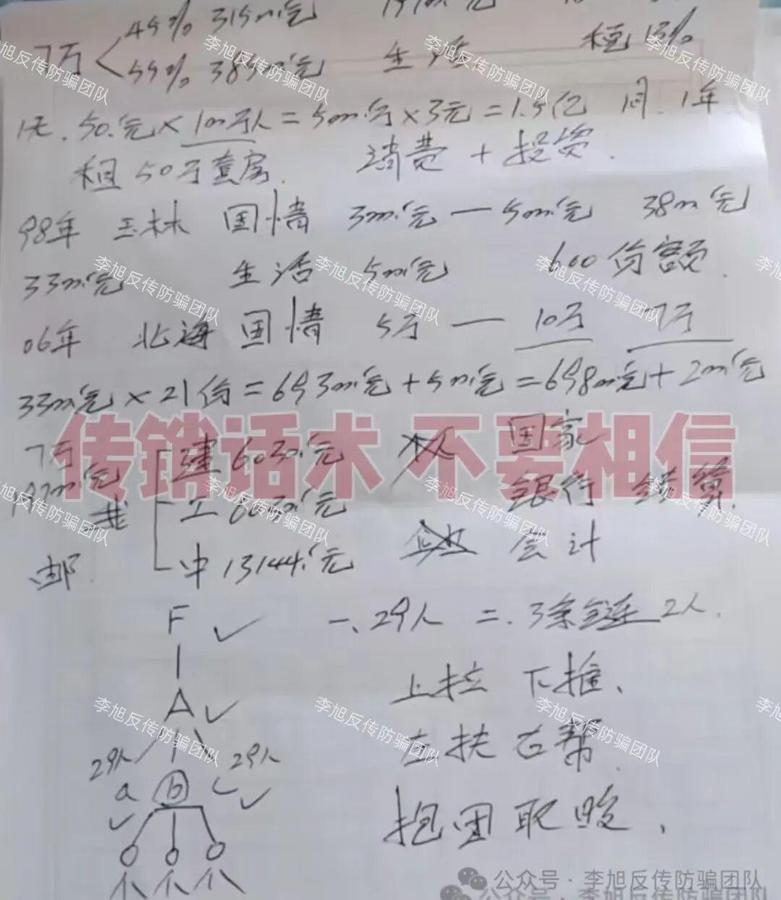 45% 315m元
7万
55% 385m元 生活 税 13%
1天. 50元×100万人=5m万×3元=1.5亿 1月. 1年
租50万套房. 消费+投资.
98年 玉林 国情 3m元—5m元 38m元
33m元 生活 5m元 600份额.
06年 北海 国情 5万—10万 7万
33m元×21份=693m元+5m元=698m元+2m元
7万 建 603m元 国家
工 603m元 银行 结算.
邮 中 13144元 会计
传销话术 不要相信
F 一、29人 二、3条链 2人.
A 上拉 下推、
29人 29人 左扶 右帮.
a b c
抱团取暖、
李旭反传防骗团队
公众号·李旭反传防骗团队